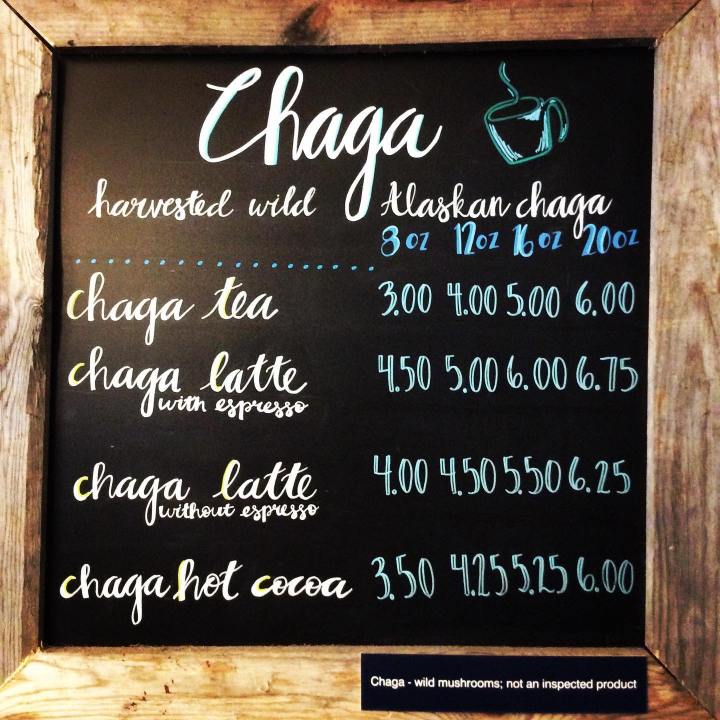 Chaga
harvested wild Alaskan chaga
8oz 12oz 16oz 20oz
chaga tea 3.00 4.00 5.00 6.00
chaga latte 4.50 5.00 6.00 6.75
with espresso
chaga latte 4.00 4.50 5.50 6.25
without espresso
chaga hot cocoa 3.50 4.25 5.25 6.00
Chaga - wild mushrooms; not an inspected product